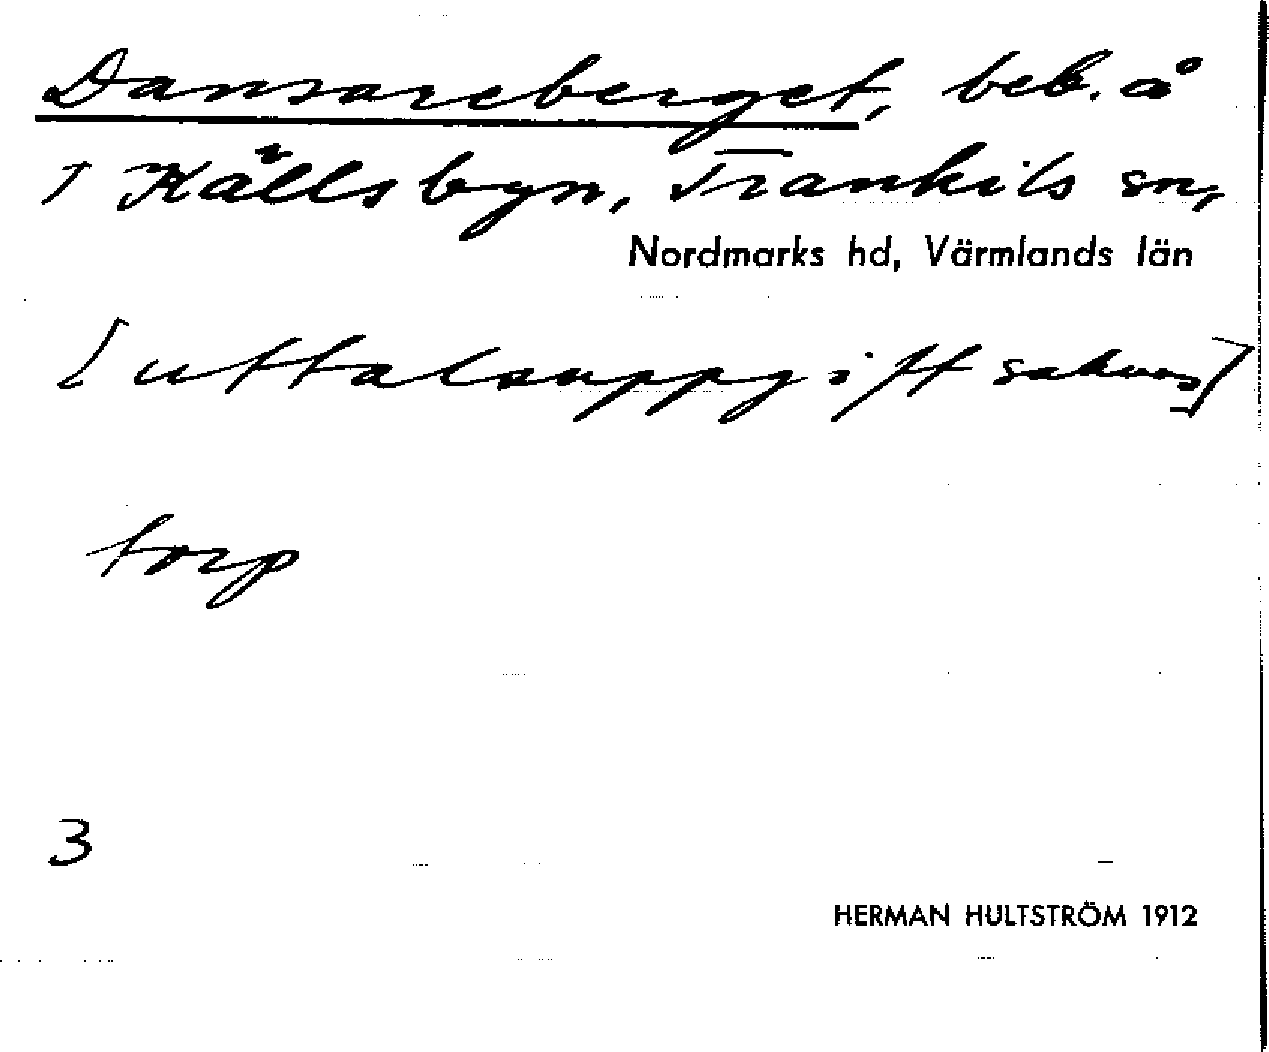 Dansareberget, beb. å
1 Källsbyn, Trankils sn,
Nordmarks hd, Värmlands län
[uttalsuppgift saknas]
torp
3
HERMAN HULTSTRÖM 1912